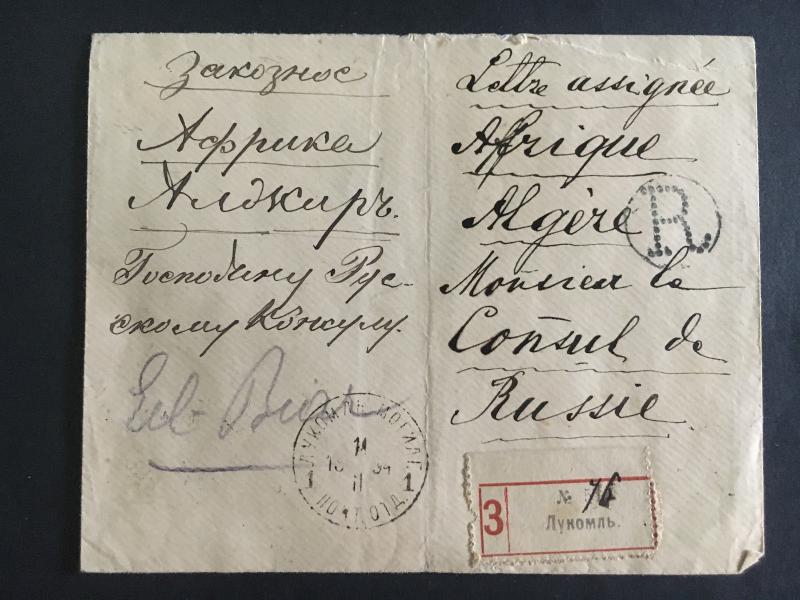 Заказное
Африка
Алджиръ.
Господину Рус-
скому Консулу.
Lettre assignée
Afrique
Algére
R
Monsieur le
Consul de
Russie.
ЛУКОМЛЬ МОГИЛ.Г.
14
II
1 1
ПОЧТ.ОТД.
3
№ 76
Лукомль.